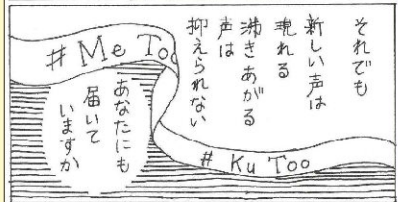 それでも
新しい声は
現れる
沸きあがる
声は
抑えられない
# Me Too
あなたにも
届いて
いますか
# Ku Too